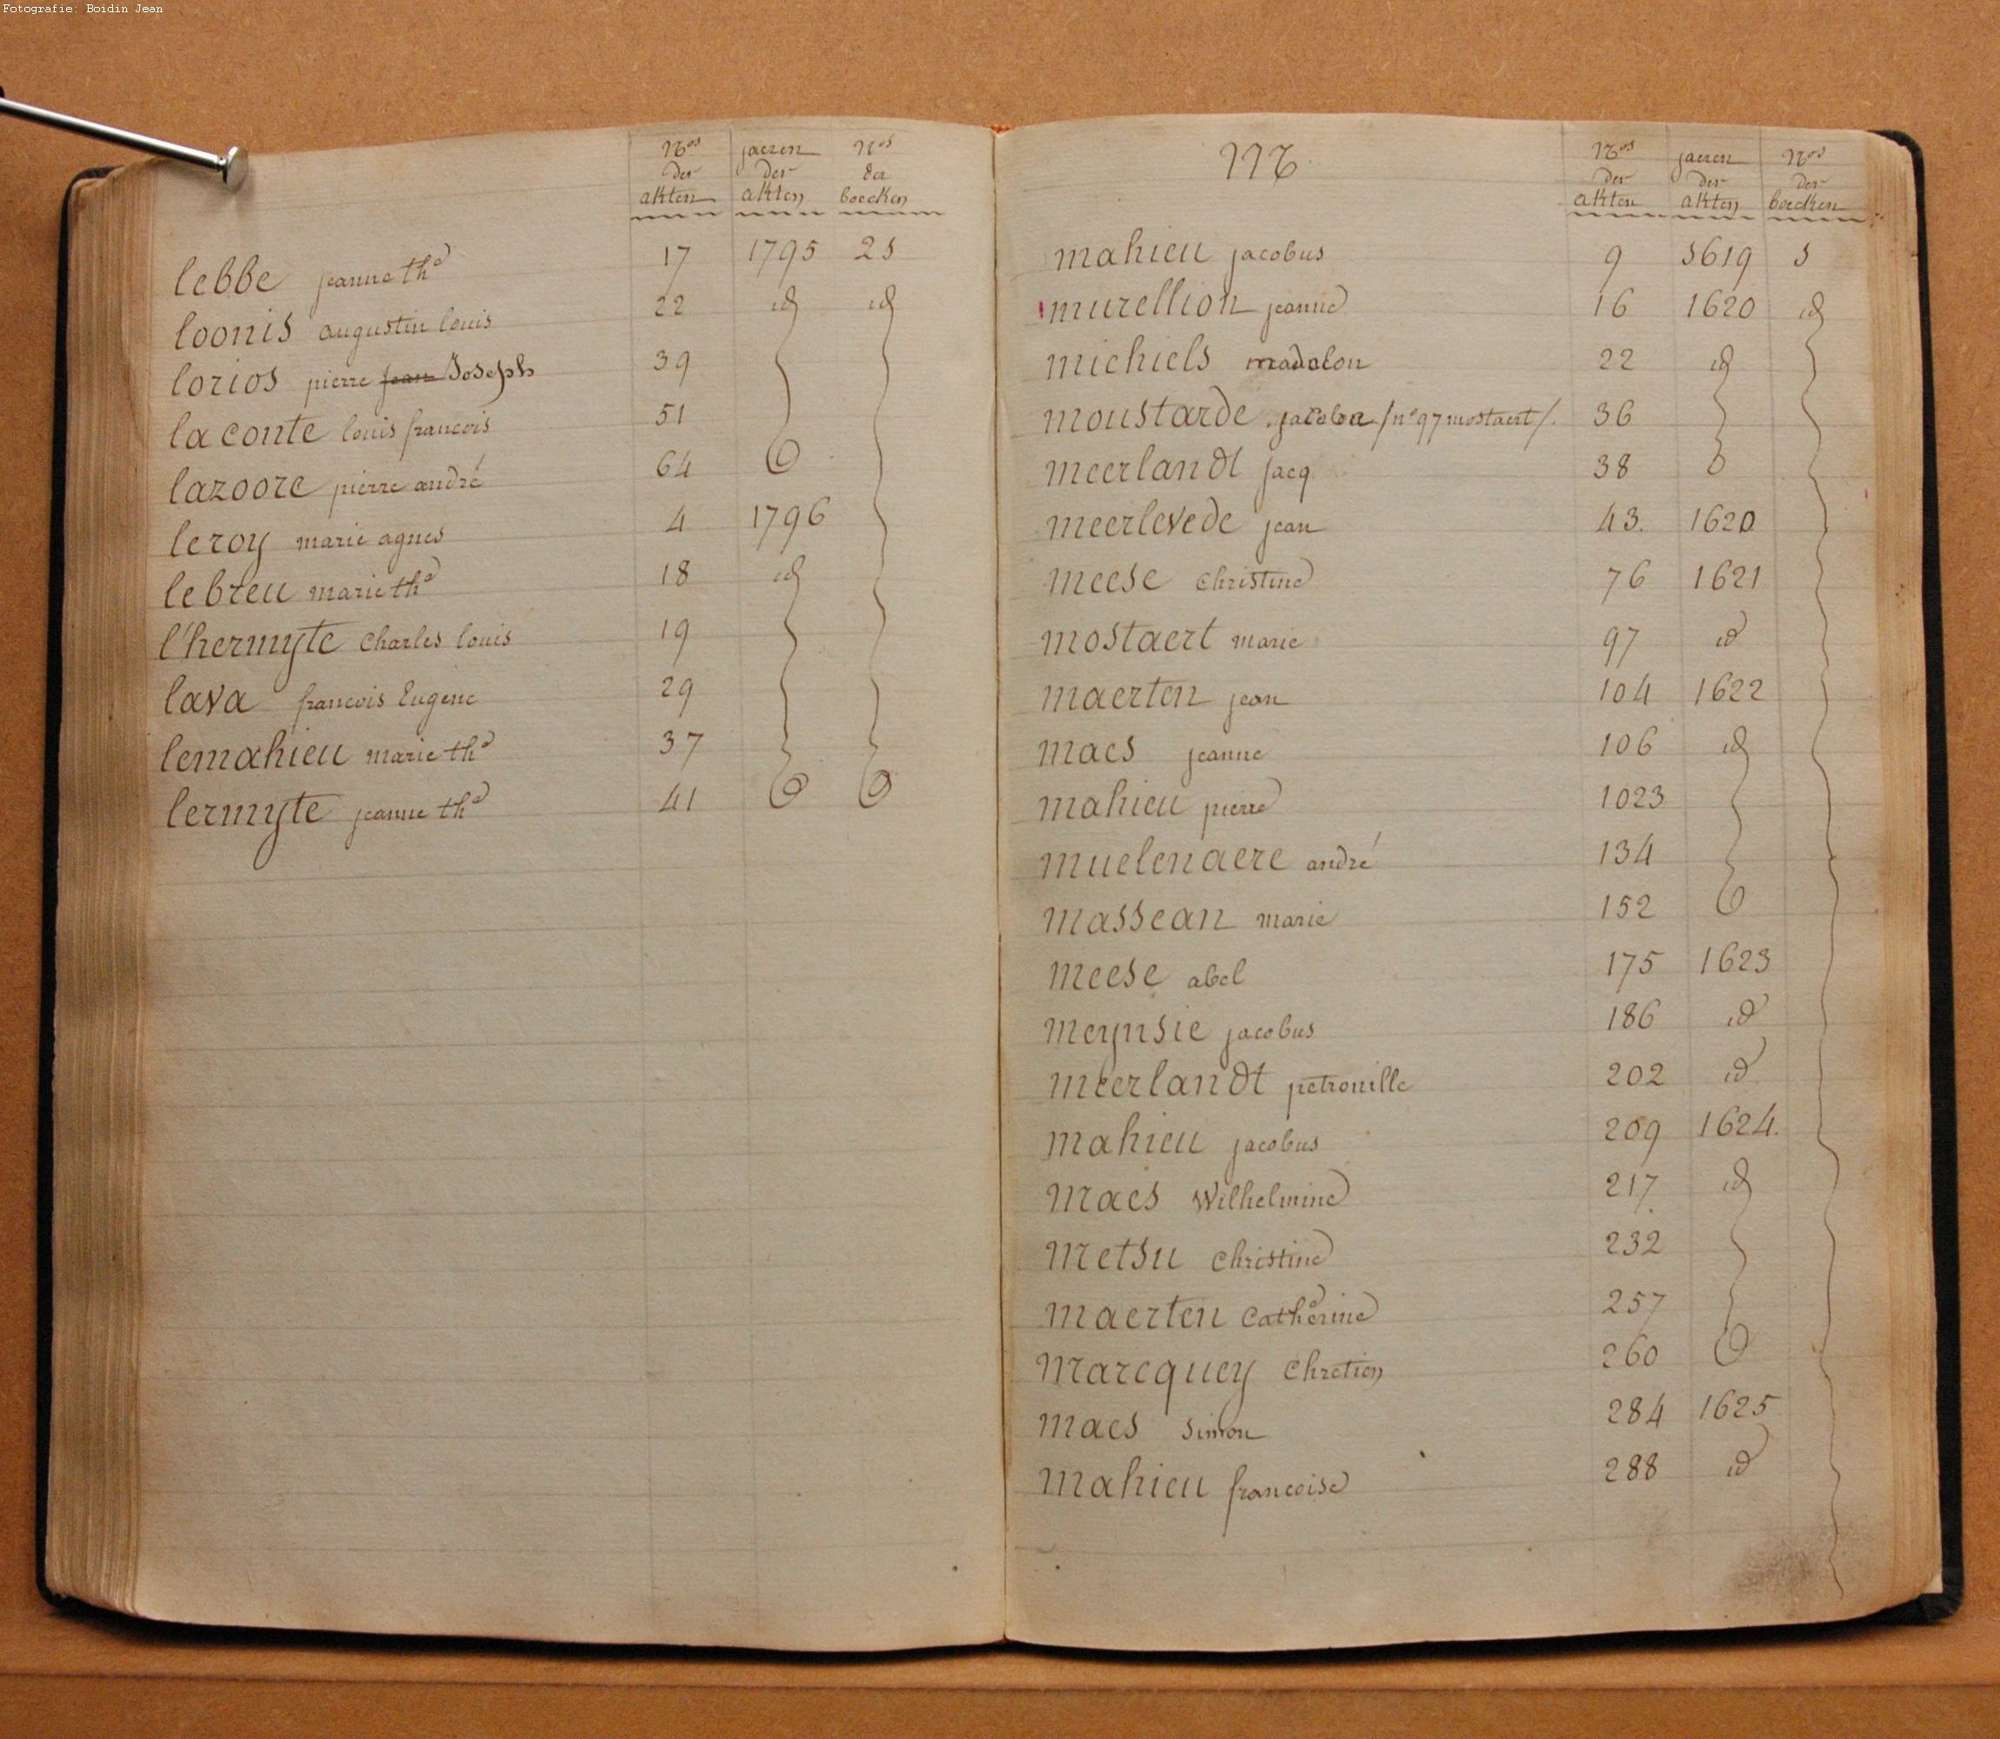 Fotografie: Boidin Jean
Nos der akten jaeren der akten Nos der boecken
lebbe jeanne the 17 1795 25
loonis augustin louis 22 id id
lorios pierre jean Joseph 39
laconte louis francois 51
lazoore pierre andré 64
leroy marie agnes 4 1796
lebreu marie the 18 id
l'hermyte Charles louis 19
lava francois Eugene 29
lemahieu marie the 37
lermyte jeanne the 41
Nos der akten jaeren der akten Nos der boecken
mahieu jacobus 9 1619 1
murellion jeanne 16 1620 id
michiels madalon 22 id
moustarde jacoba /no 97 mostaert/. 36
meerlandt jacq 38
meerlevede jean 43. 1620
meese Christine 76 1621
mostaert marie 97 id
maerten jean 104 1622
maes jeanne 106 id
mahieu pierre 1023
muelenaere andré 134
massean marie 152
meese abel 175 1623
meynsie jacobus 186 id
meerlandt petronille 202 id
mahieu jacobus 209 1624.
maes Wilhelmine 217 id
metsu Christine 232
maerten Catherine 257
marcquey Chretien 260
maes Simon 284 1625
mahieu francoise 288 id